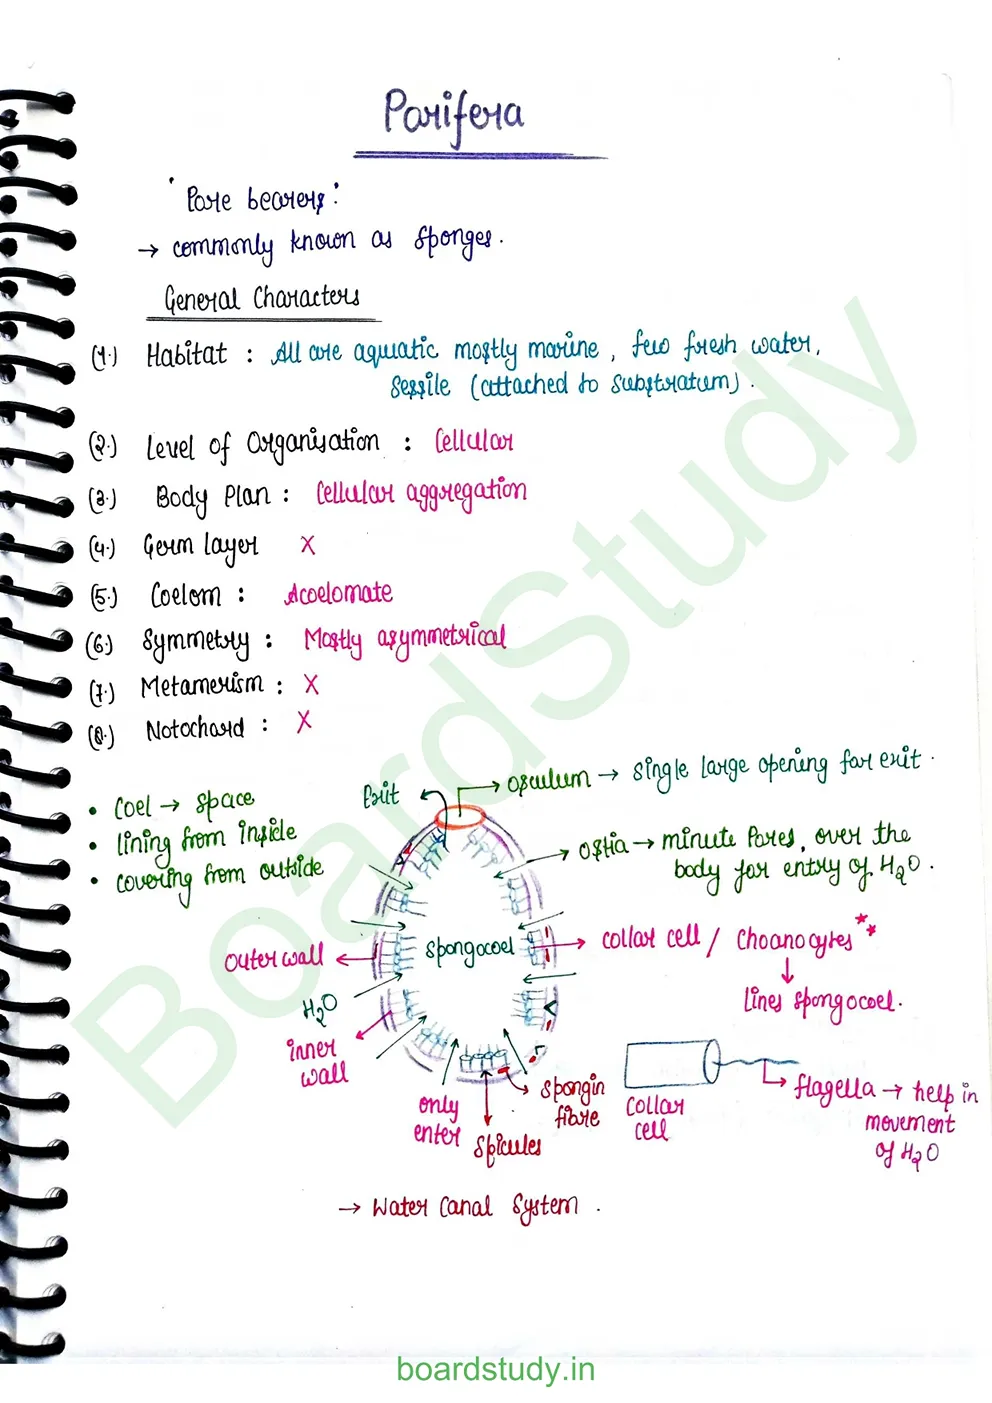 Porifera
'Pore bearers':
→ commonly known as sponges.
General Characters
(1.) Habitat : All are aquatic mostly marine, few fresh water,
sessile (attached to substratum).
(2.) Level of Organisation : Cellular
(3.) Body Plan : Cellular aggregation
(4.) Germ layer X
(5.) Coelom : Acoelomate
(6.) Symmetry : Mostly asymmetrical
(7.) Metamerism : X
(8.) Notochord : X
• Coel → space
• lining from inside
• covering from outside
Exit
→ Osculum → single large opening for exit.
→ Ostia → minute Pores, over the
body for entry of H2O.
Spongocoel
→ collar cell / Choanocytes **
↓
lines spongocoel.
outer wall ←
H2O
inner
wall
only
enter
spicules
→ spongin
fibre
collar
cell
→ flagella → help in
movement
of H2O
→ Water Canal System.
BoardStudy
boardstudy.in